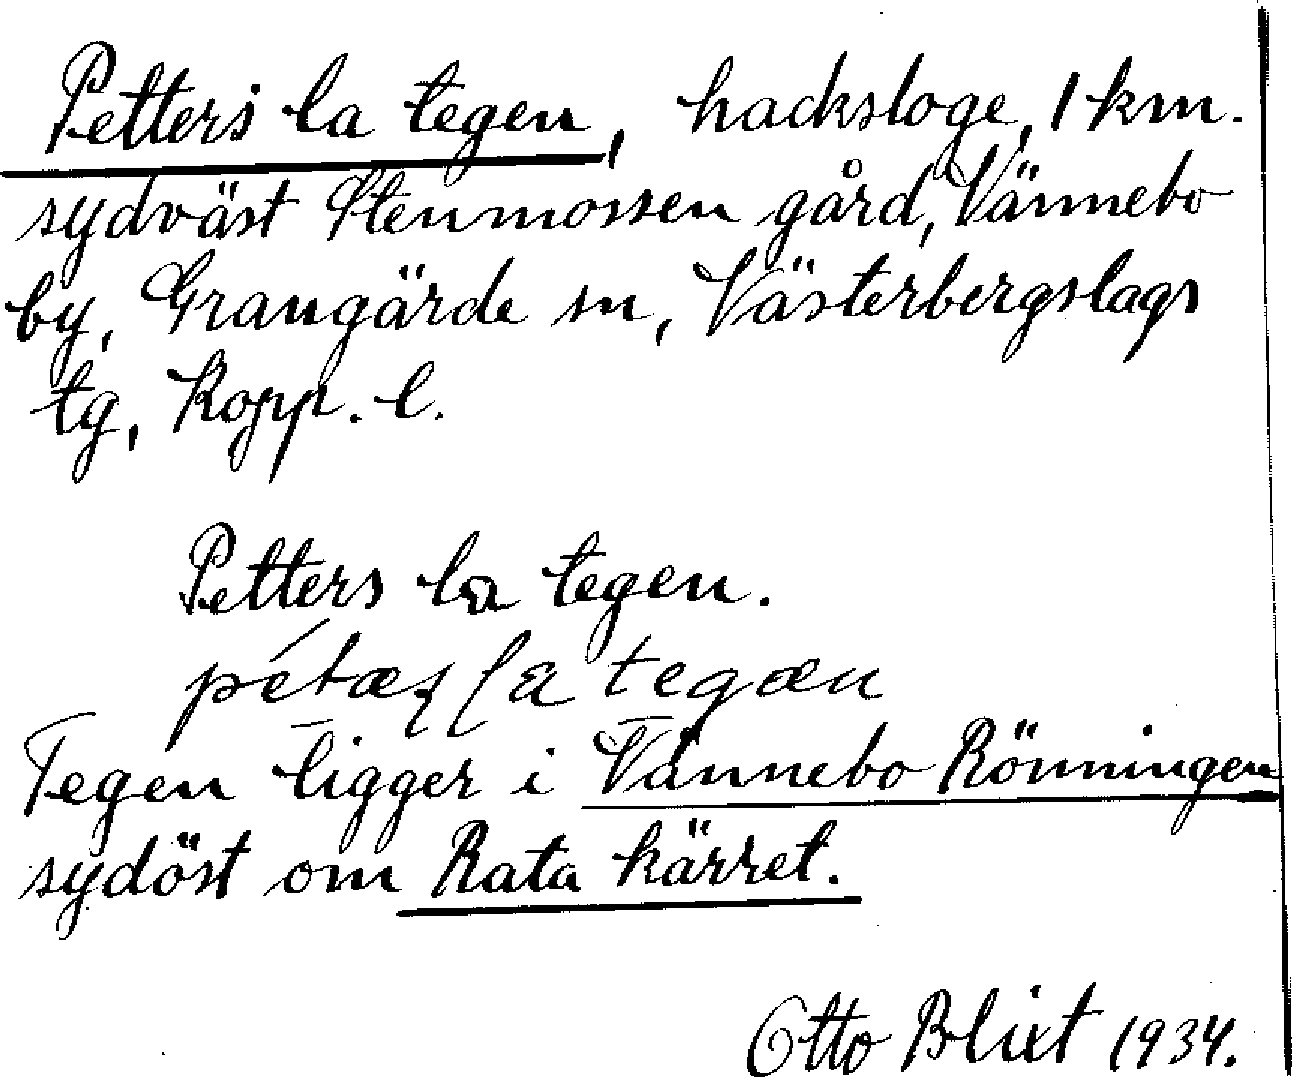 Petters la tegen, hacksloge, 1 km.
sydväst Stenmossen gård, Vännebo
by, Grangärde sn, Västerbergslags
tg, Kopp. l.
Petters la tegen.
tegæn
Tegen ligger i Vännebo Rönningen
sydöst om Rata kärret.
Otto Blixt 1934.